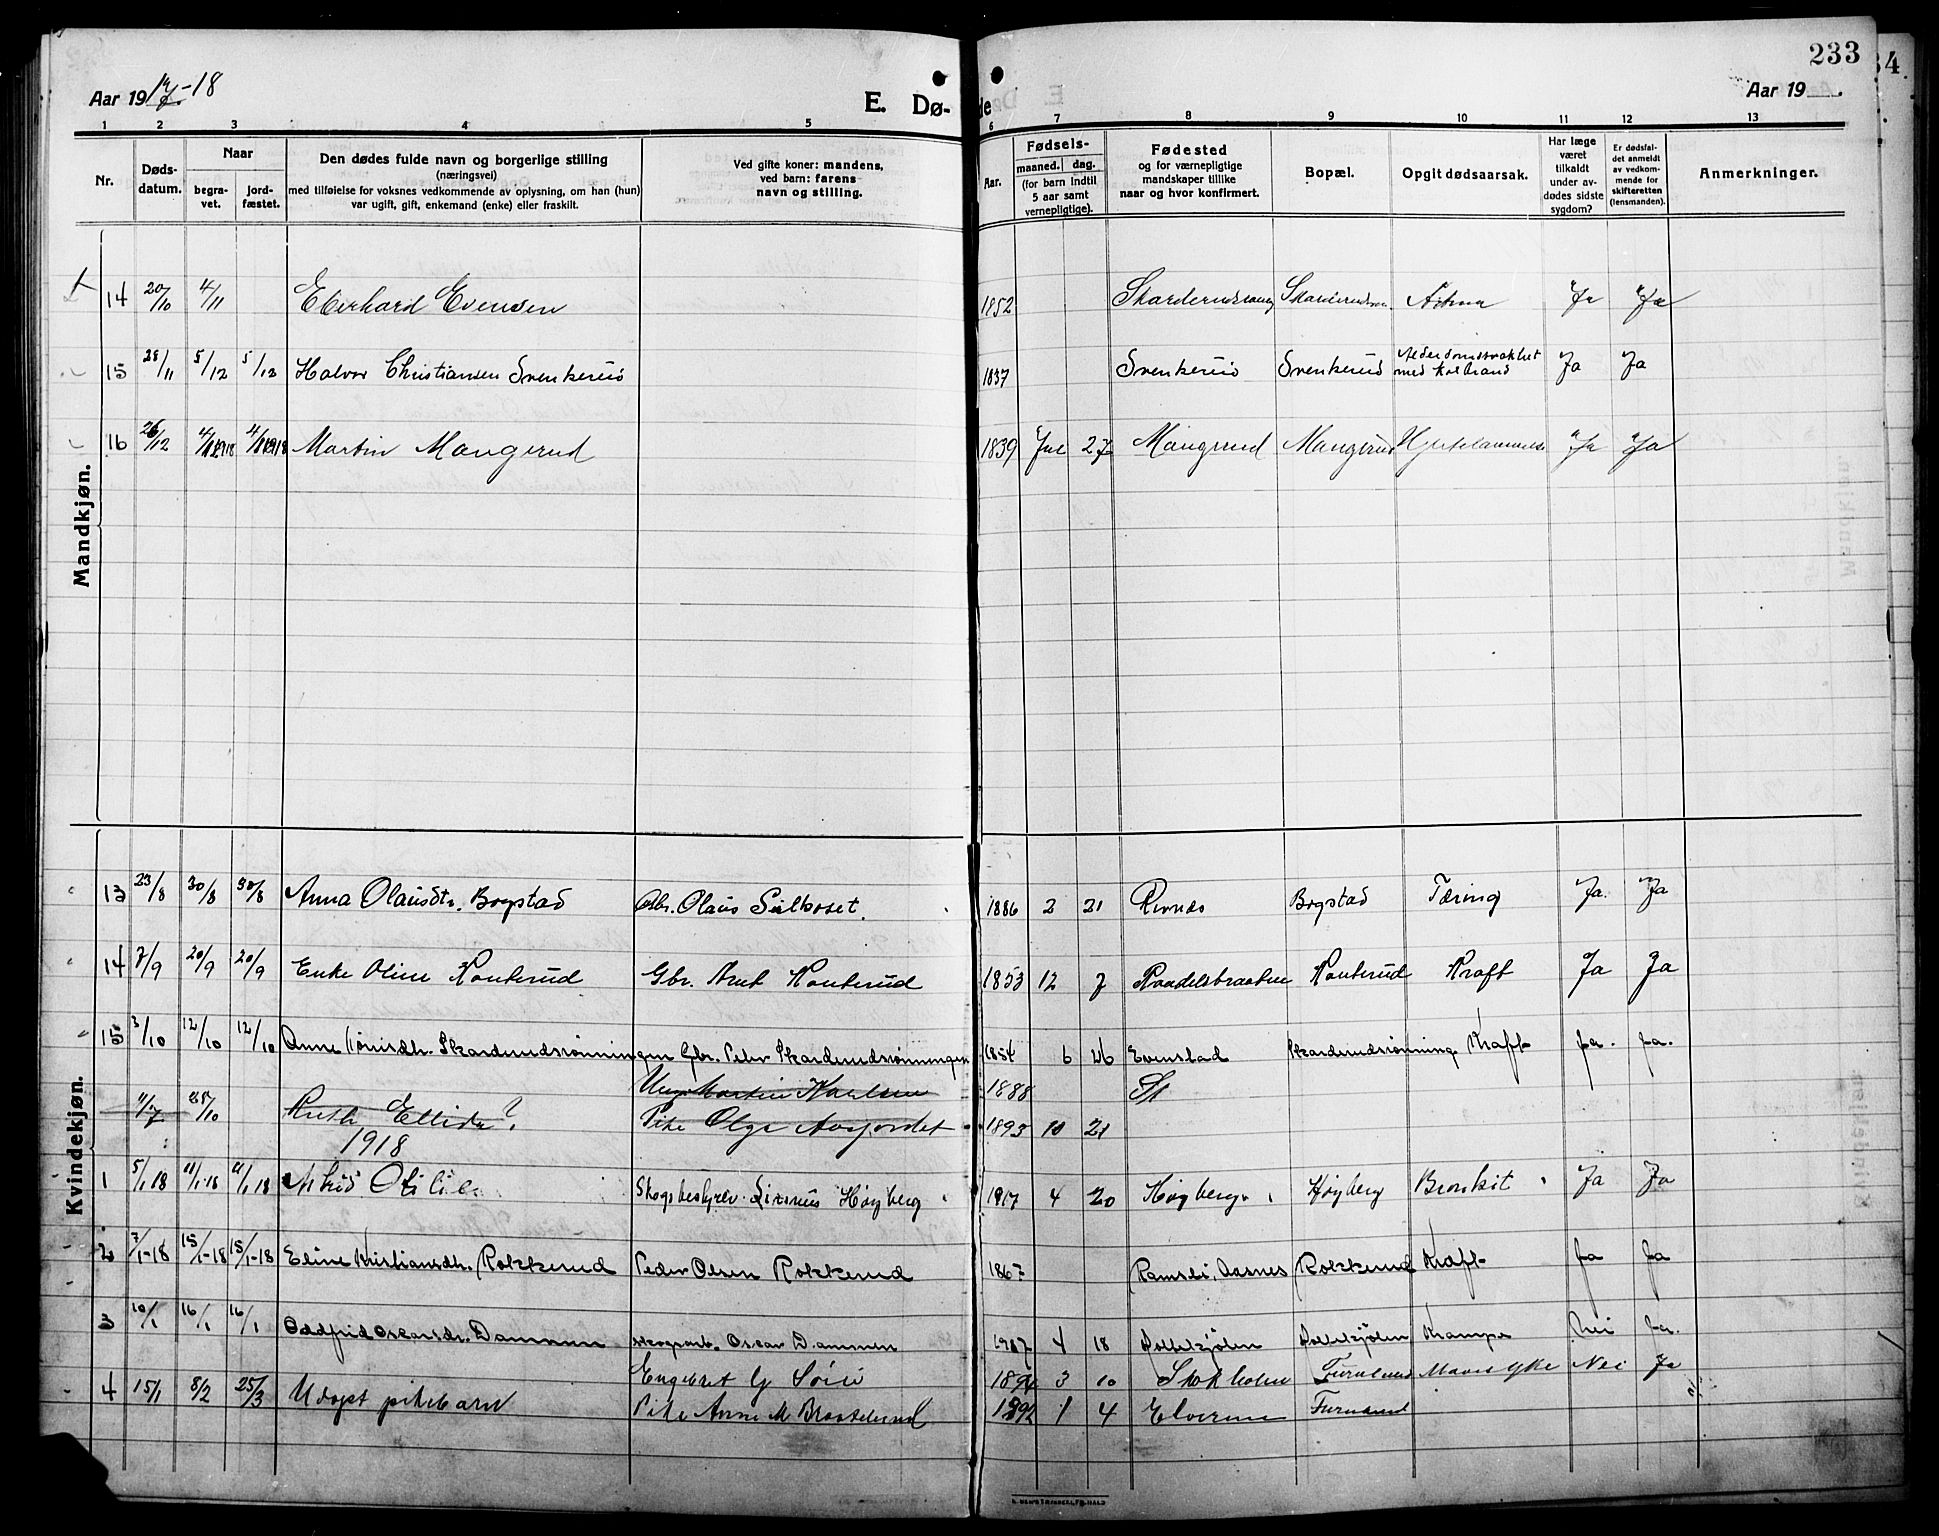 Aar 1917-18
E. Dø-
de
Aar 19
233
34
1 2 3 4 5 6 7 8 9 10 11 12 13
Nr.
Døds-
datum.
Naar
begra-
vet.
jord-
fæstet.
Den dødes fulde navn og borgerlige stilling
(næringsvei)
med tilføielse for voksnes vedkommende av oplysning, om han (hun)
var ugift, gift, enkemand (enke) eller fraskilt.
Ved gifte koner: mandens,
ved barn: farens
navn og stilling.
Aar.
Fødsels-
maaned. dag.
(for barn indtil
5 aar samt
vernepligtige).
Fødested
og for værnepligtige
mandskaper tillike
naar og hvor konfirmert.
Bopæl.
Opgit dødsaarsak.
Har læge
været
tilkaldt
under av-
dødes sidste
sygdom?
Er dødsfal-
det anmeldt
av vedkom-
mende for
skifteretten
(lensmanden).
Anmerkninger.
Mandkjøn.
14 20/10 4/11 Eberhard Evensen 1852 Astma Ja Ja
15 28/11 5/12 5/12 Halvor Christiansen Svenkerud 1837 Svenkerud Svenkerud Alderdomssvakhet
med Koldbrand Ja Ja
16 26/12 4/1 1918 4/1 1918 Martin Mangerud 1839 Jul 27 Mangerud Mangerud Ja Ja
Kvindekjøn.
13 23/8 30/8 30/8 Anna Olausdtr. Bogstad Gbr. Olaus 1886 2 21 Revnes Bogstad Tæring Ja. Ja
14 7/9 20/9 20/9 Enke Oline Konterud Gbr. Konterud 1853 12 7 Konterud Kraft Ja Ja
15 3/10 12/10 12/10 Anne Skarderudsrønningen Gbr. Peder Skarderudsrønningen 1854 6 26 Evenstad Skarderudsrønning. Kraft Ja. Ja.
Ung. Martin Karlsen 1888
11/7 28/10 Ruth Ellida? Pike Olga Aasjordet 1893 10 21
1918
1 5/1 18 11/1-18 11/1 18 Astrid Otilie Skogsbestyrer Høyberg 1917 4 20 Høyberg Høyberg Bronkit Ja Ja
2 7/1-18 15/1-18 15/1-18 Eline Kristiansdtr. Rokkerud Peder Olsen Rokkerud 1867 Aasnes Rokkerud Kraft Ja Ja
3 10/1 16/1 16/1 Oddfrid Oskarsdtr. Dammen skogsarb. Oscar Dammen 1917 4 18 Krampe Nei Ja.
Engebret G 1894 3 10 Stokholm Nei Ja
4 15/1 8/2 25/3 Udøpt pikebarn Pike Anne M 1892 1 4 Elverum Furulund